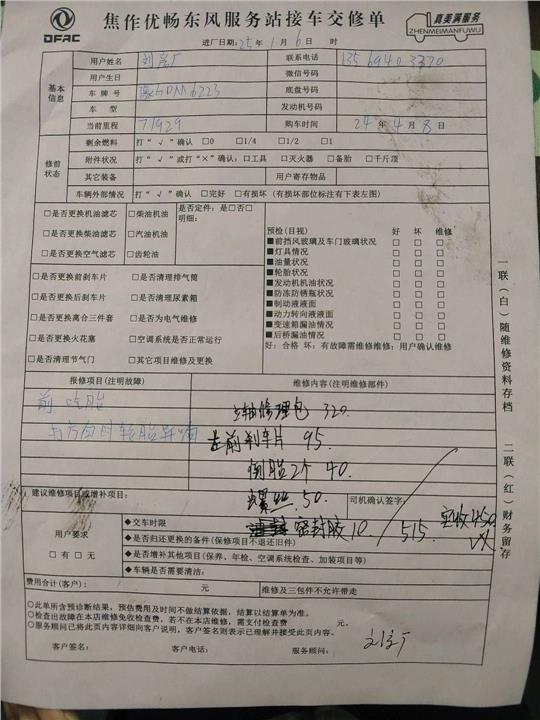 DFAC
焦作优畅东风服务站接车交修单
真美满服务
ZHENMEIMANFUWU
进厂日期:25年1月6日 时
基本信息
用户姓名 联系电话
用户生日 微信号码
车牌号 豫GDM6223 底盘号码
车型 发动机号码
当前里程 71929 购车时间 24年4月8日
修前状态
剩余燃料 打“√”确认 □0 □1/4 □1/2 □1
附件状况 打“√”或打“×”确认:□工具 □灭火器 □备胎 □千斤顶
其它装备 用户寄存物品
车辆外部情况 打“√”确认 □完好 □有损坏 (有损坏部位标注有下表左图)
□是否更换机油滤芯 □柴油机油
□是否更换柴油滤芯 □汽油机油
□是否更换空气滤芯 □齿轮油
是否定件: 是□否□
明细:
□是否更换前刹车片 □是否清理排气筒
□是否更换后刹车片 □是否清理尿素箱
□是否更换离合三件套 □是否为电气维修
□是否更换火花塞 □空调系统是否正常运行
□是否清理节气门 □其它项目维修及更换
预检(目视) 好 坏 维修
■前挡风玻璃及车门玻璃状况 □ □ □
■灯具情况 □ □ □
■油量状况 □ □ □
■轮胎状况 □ □ □
■发动机机油状况 □ □ □
■防冻防锈瓶状况 □ □ □
■制动液液面 □ □ □
■动力转向液液面 □ □ □
■变速箱漏油情况 □ □ □
■后桥漏油情况 □ □ □
好:合格 坏:有故障需维修维修:用户确认维修
报修项目(注明故障) 维修内容(注明维修部件)
前吃胎
主轴修理包 320
左前刹车片 95
倒胎2个 40
螺丝 50
密封胶10 515 实收450
建议维修项目或增补项目: 司机确认签字
用户要求
□有 □无
◆交车时限
◆是否归还更换的备件(保修项目不退还旧件)
◆是否增补其他项目(保养、年检、空调系统检查、加装项目等)
◆车辆是否需要清洁:
费用合计(客户): 元 维修及三包件不允许带走
○此单所含预诊断结果,预估费用及时间不做结算依据,结算以结算单为准。
○检查出故障在本店维修免收检查费,若不在本店维修,需支付检查费 元。
○服务顾问已将此页内容详细向客户说明,客户签名则表示已理解并接受此页内容。
客户签名: 客户电话: 服务顾问:
一联(白)随维修资料存档 二联(红)财务留存